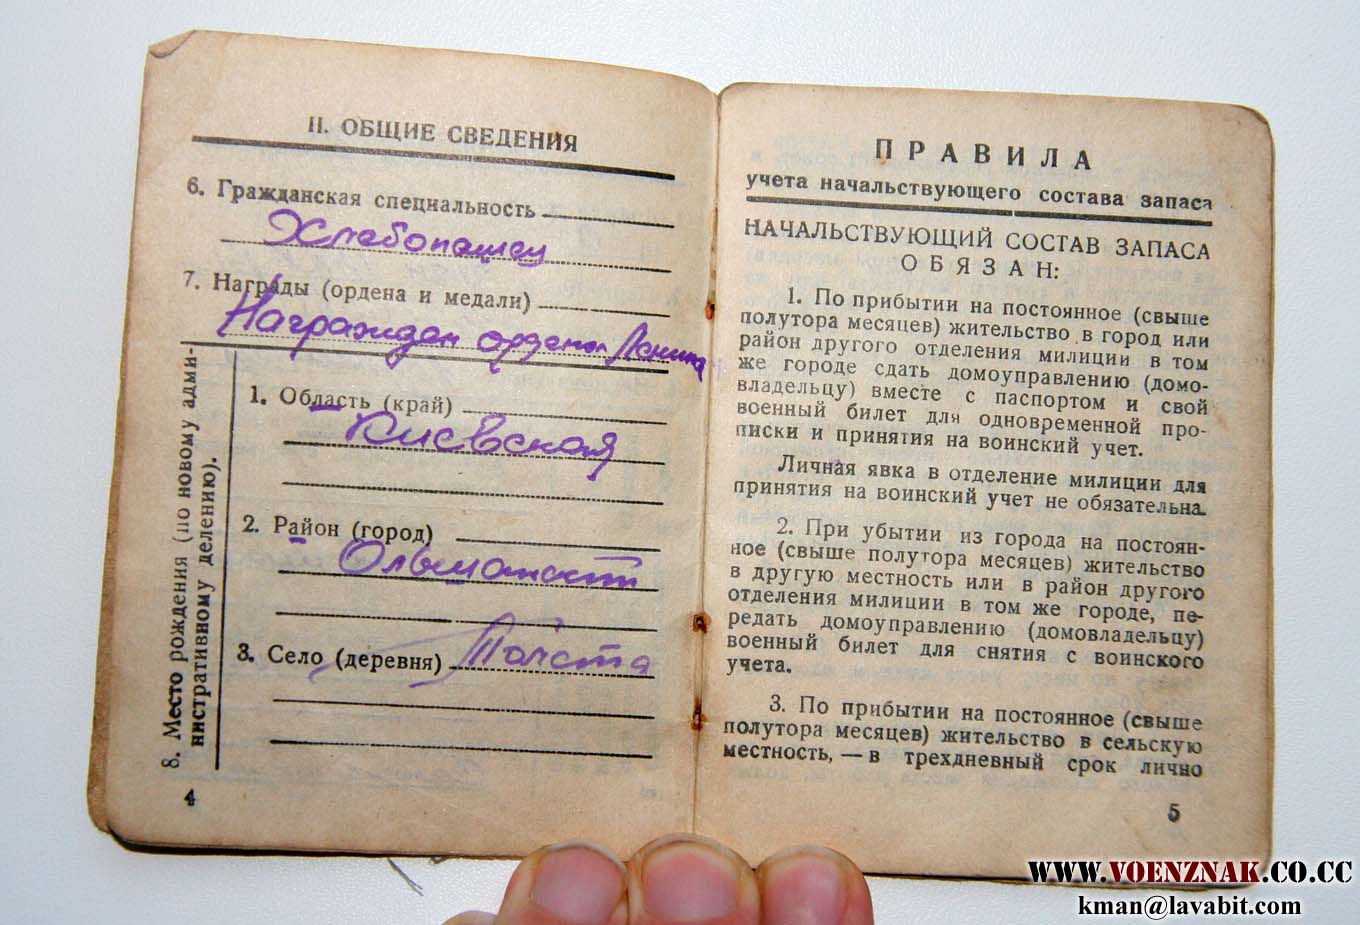 II. ОБЩИЕ СВЕДЕНИЯ
6. Гражданская специальность
Хлебопашец
7. Награды (ордена и медали)
Награжден орденом Ленина
8. Место рождения (по новому адми-
нистративному делению).
1. Область (край)
Киевская
2. Район (город)
3. Село (деревня) Толста
4
ПРАВИЛА
учета начальствующего состава запаса
НАЧАЛЬСТВУЮЩИЙ СОСТАВ ЗАПАСА
ОБЯЗАН:
1. По прибытии на постоянное (свыше
полутора месяцев) жительство в город или
район другого отделения милиции в том
же городе сдать домоуправлению (домо-
владельцу) вместе с паспортом и свой
военный билет для одновременной про-
писки и принятия на воинский учет.
Личная явка в отделение милиции для
принятия на воинский учет не обязательна.
2. При убытии из города на постоян-
ное (свыше полутора месяцев) жительство
в другую местность или в район другого
отделения милиции в том же городе, пе-
редать домоуправлению (домовладельцу)
военный билет для снятия с воинского
учета.
3. По прибытии на постоянное (свыше
полутора месяцев) жительство в сельскую
местность, — в трехдневный срок лично
5
WWW.VOENZNAK.CO.CC
kman@lavabit.com